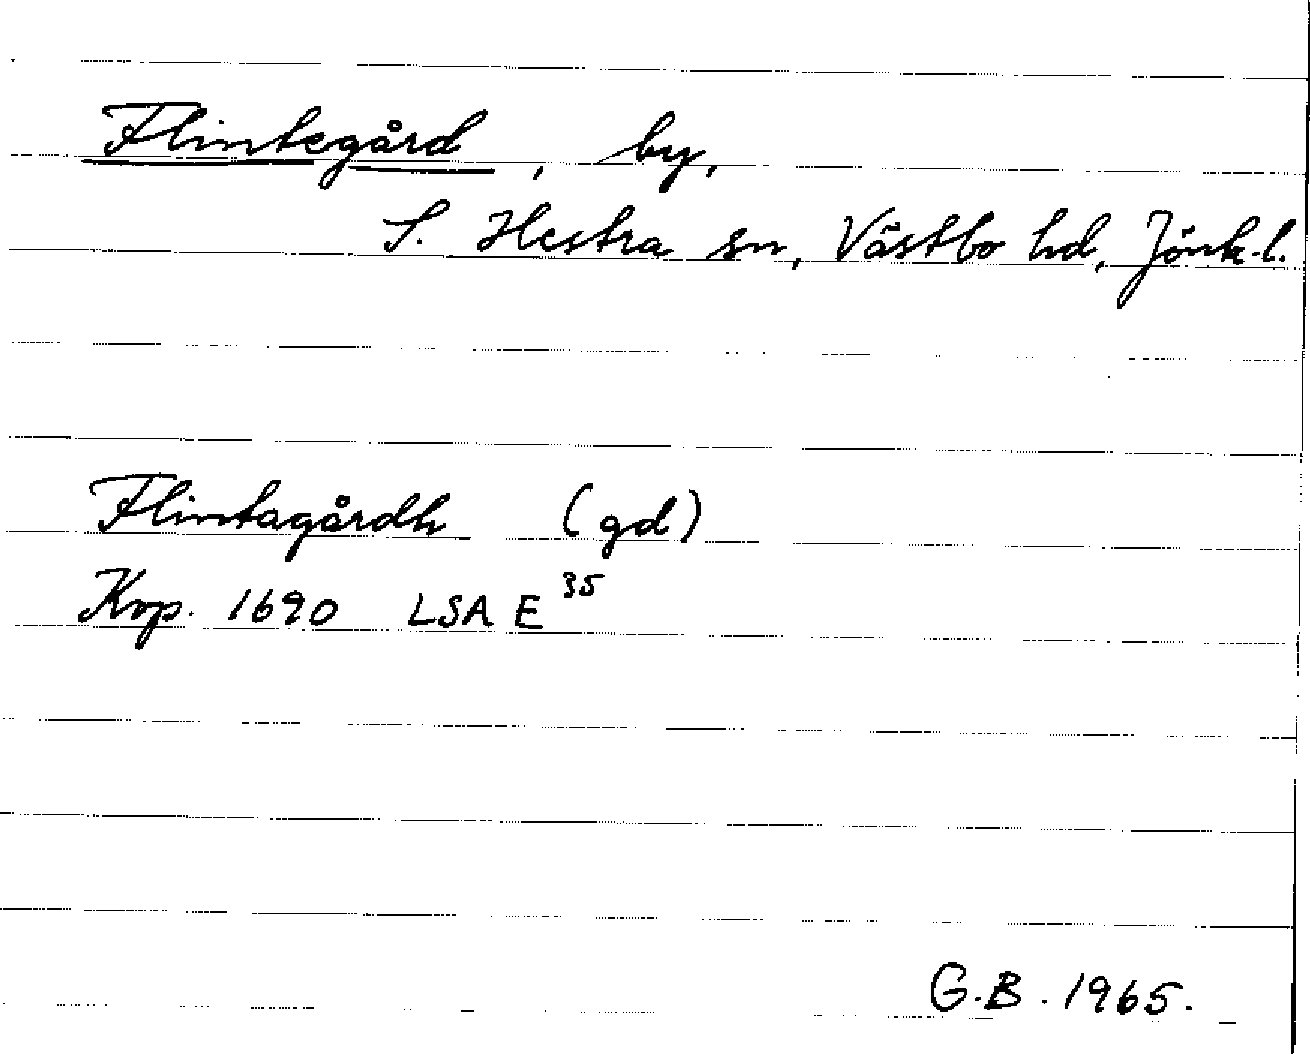 Flintegård, by,
S. Hestra sn, Västbo hd, Jönk.l.
Flintagårdh (gd)
Kop. 1690 LSA E 35
G.B. 1965.